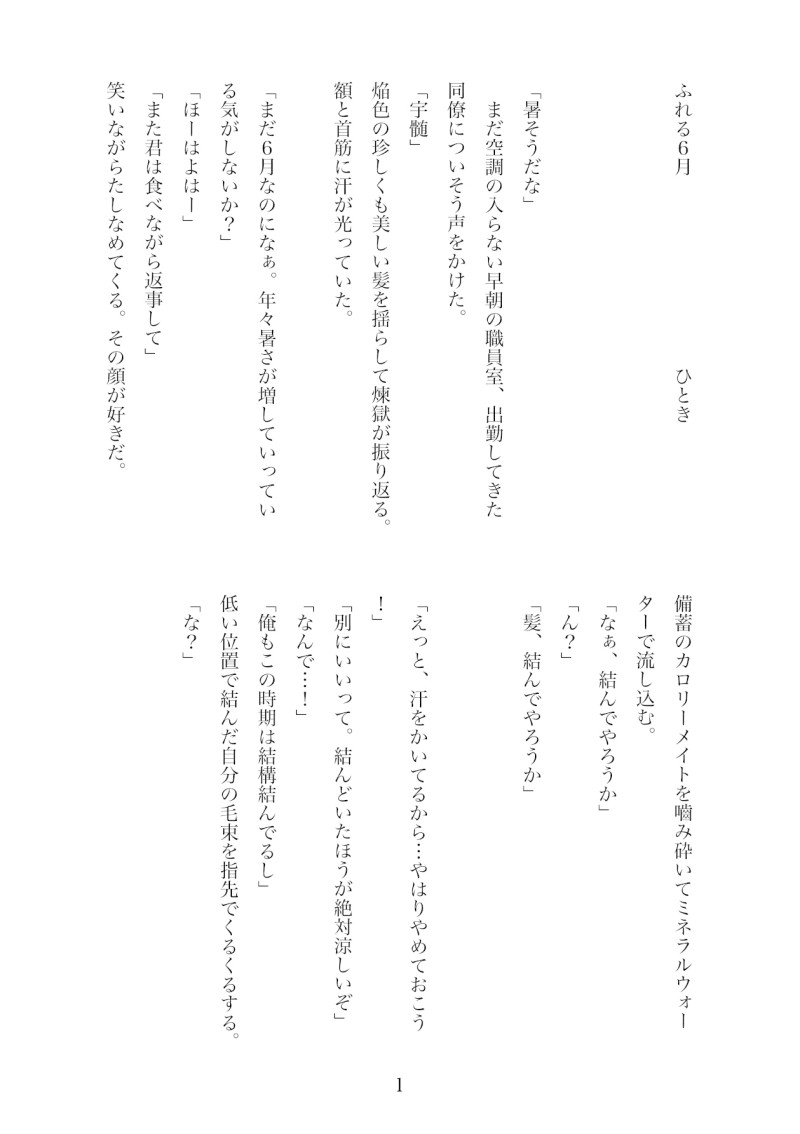 ふれる６月　　　　　　　　　　ひとき
「暑そうだな」
　まだ空調の入らない早朝の職員室、出勤してきた
同僚についそう声をかけた。
「宇髄」
焔色の珍しくも美しい髪を揺らして煉獄が振り返る。
額と首筋に汗が光っていた。
「まだ６月なのになぁ。年々暑さが増していってい
る気がしないか？」
「ほーはよはー」
「また君は食べながら返事して」
笑いながらたしなめてくる。その顔が好きだ。
備蓄のカロリーメイトを嚙み砕いてミネラルウォー
ターで流し込む。
「なぁ、結んでやろうか」
「ん？」
「髪、結んでやろうか」
「えっと、汗をかいてるから…やはりやめておこう
！」
「別にいいって。結んどいたほうが絶対涼しいぞ」
「なんで…！」
「俺もこの時期は結構結んでるし」
低い位置で結んだ自分の毛束を指先でくるくるする。
「な？」
1